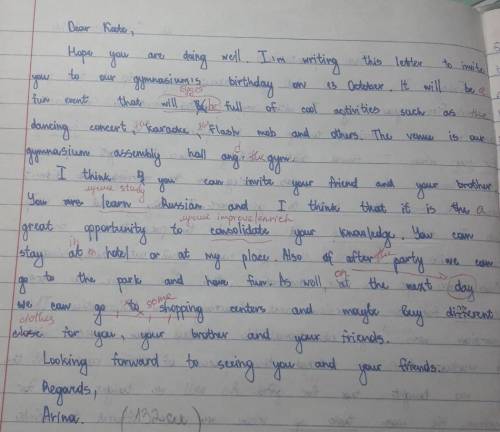 Dear Kate,
Hope you are doing well. I'm writing this letter to invite
you to our gymnasium's birthday on 13 October. It will be a
fun event that will be full of cool activities such as the
dancing concert, karaoke, flash mob and others. The venue is our
gymnasium assembly hall and the gym.
I think you can invite your friend and your brother
лучше study
You are learn Russian and I think that it is the a
лучше improve/enrich
great opportunity to consolidate your knowledge. You can
stay at in hotel or at my place. Also of after the party we can
on
go to the park and have fun. As well, at the next day
some
we can go to shopping centers and maybe buy different
clothes
close for you, your brother and your friends.
Looking forward to seeing you and your friends.
Regards,
Arina. (132 сл)